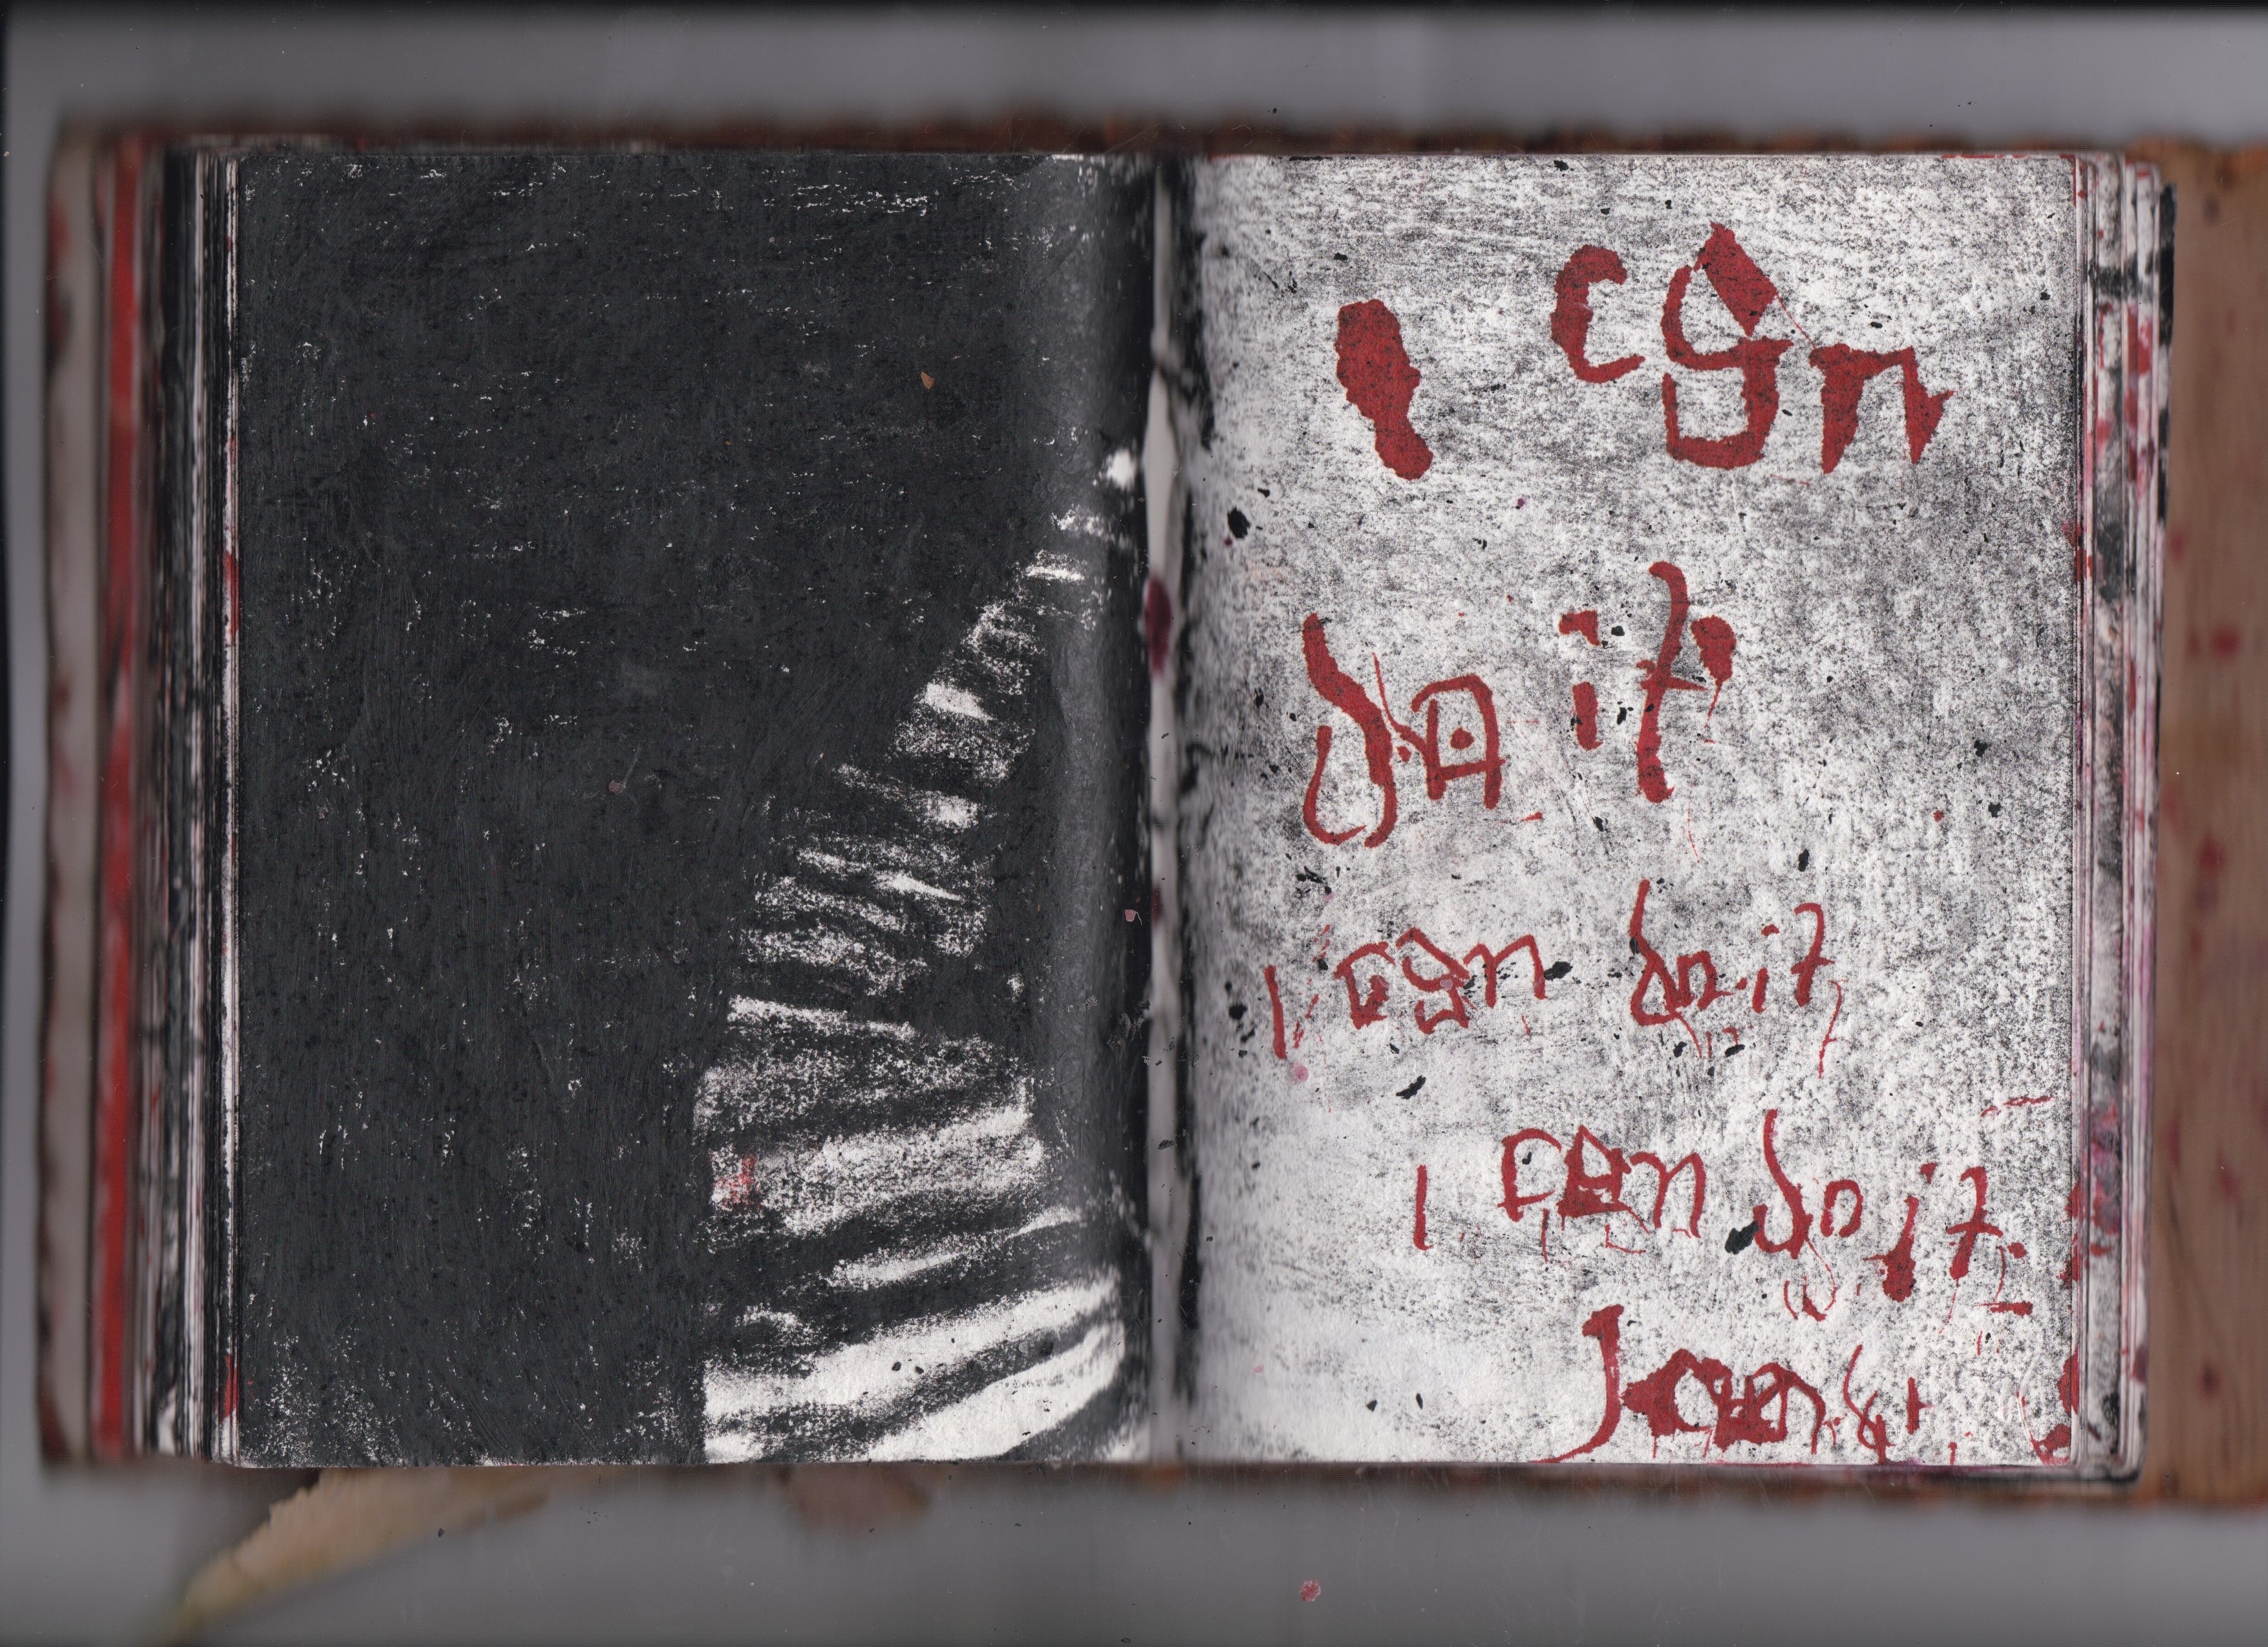 I can
do it
I can do it
I can do it
I can